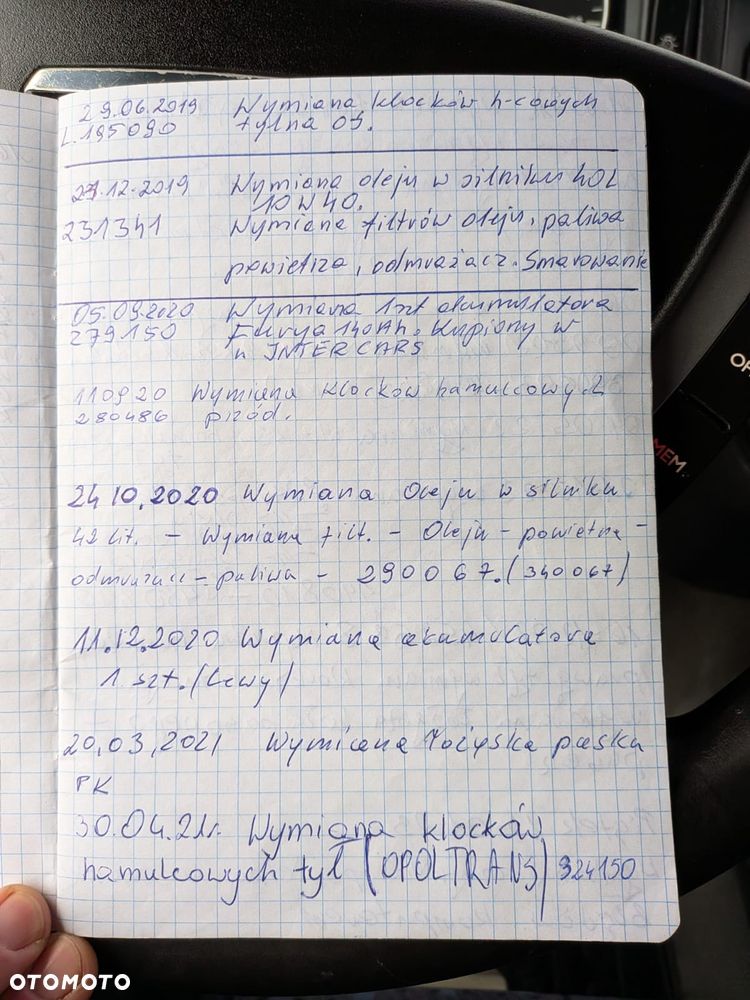 29.06.2019 Wymiana klocków h-cowych
L.195090 tylna oś.
27.12.2019 Wymiana oleju w silniku 40L
10W40.
231341 Wymiana filtrów oleju, paliwa
powietrza, odmrażacz. Smarowanie
05.09.2020 Wymiana 1szt akumulatora
279150 140Ah. Kupiony w
w INTERCARS
110920 Wymiana klocków hamulcowych
280486 przód.
24 10.2020 Wymiana Oleju w silniku
42 lit. – Wymiana filt. – Oleju – powietrza –
odmrażacz – paliwa – 290067. (340067)
11.12.2020 Wymiana akumulatora
1 szt. (Lewy)
20,03,2021 Wymiana łożyska paska
PK
30.04.21r. Wymiana klocków
hamulcowych tył (OPOLTRANS) 324150
OP
MEM
OTOMOTO